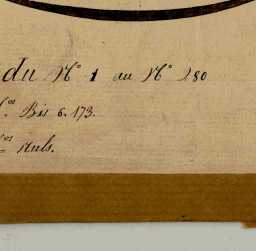 du N° 1 au N° 280
f.os Bis 6. 173.
f.os nuls.